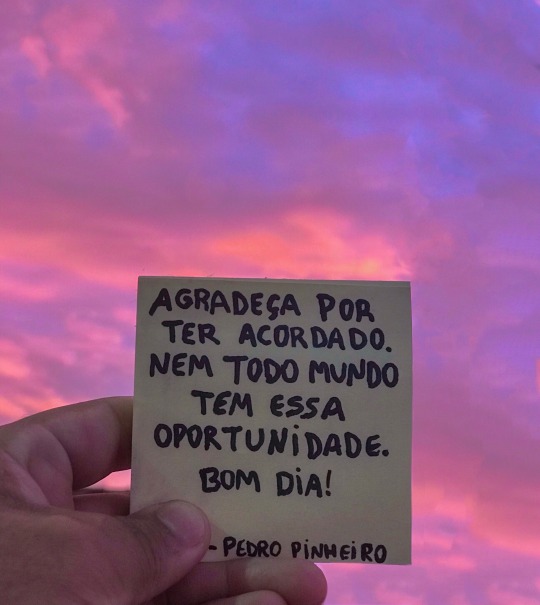 AGRADEÇA POR
TER ACORDADO.
NEM TODO MUNDO
TEM ESSA
OPORTUNIDADE.
BOM DIA!
- PEDRO PINHEIRO